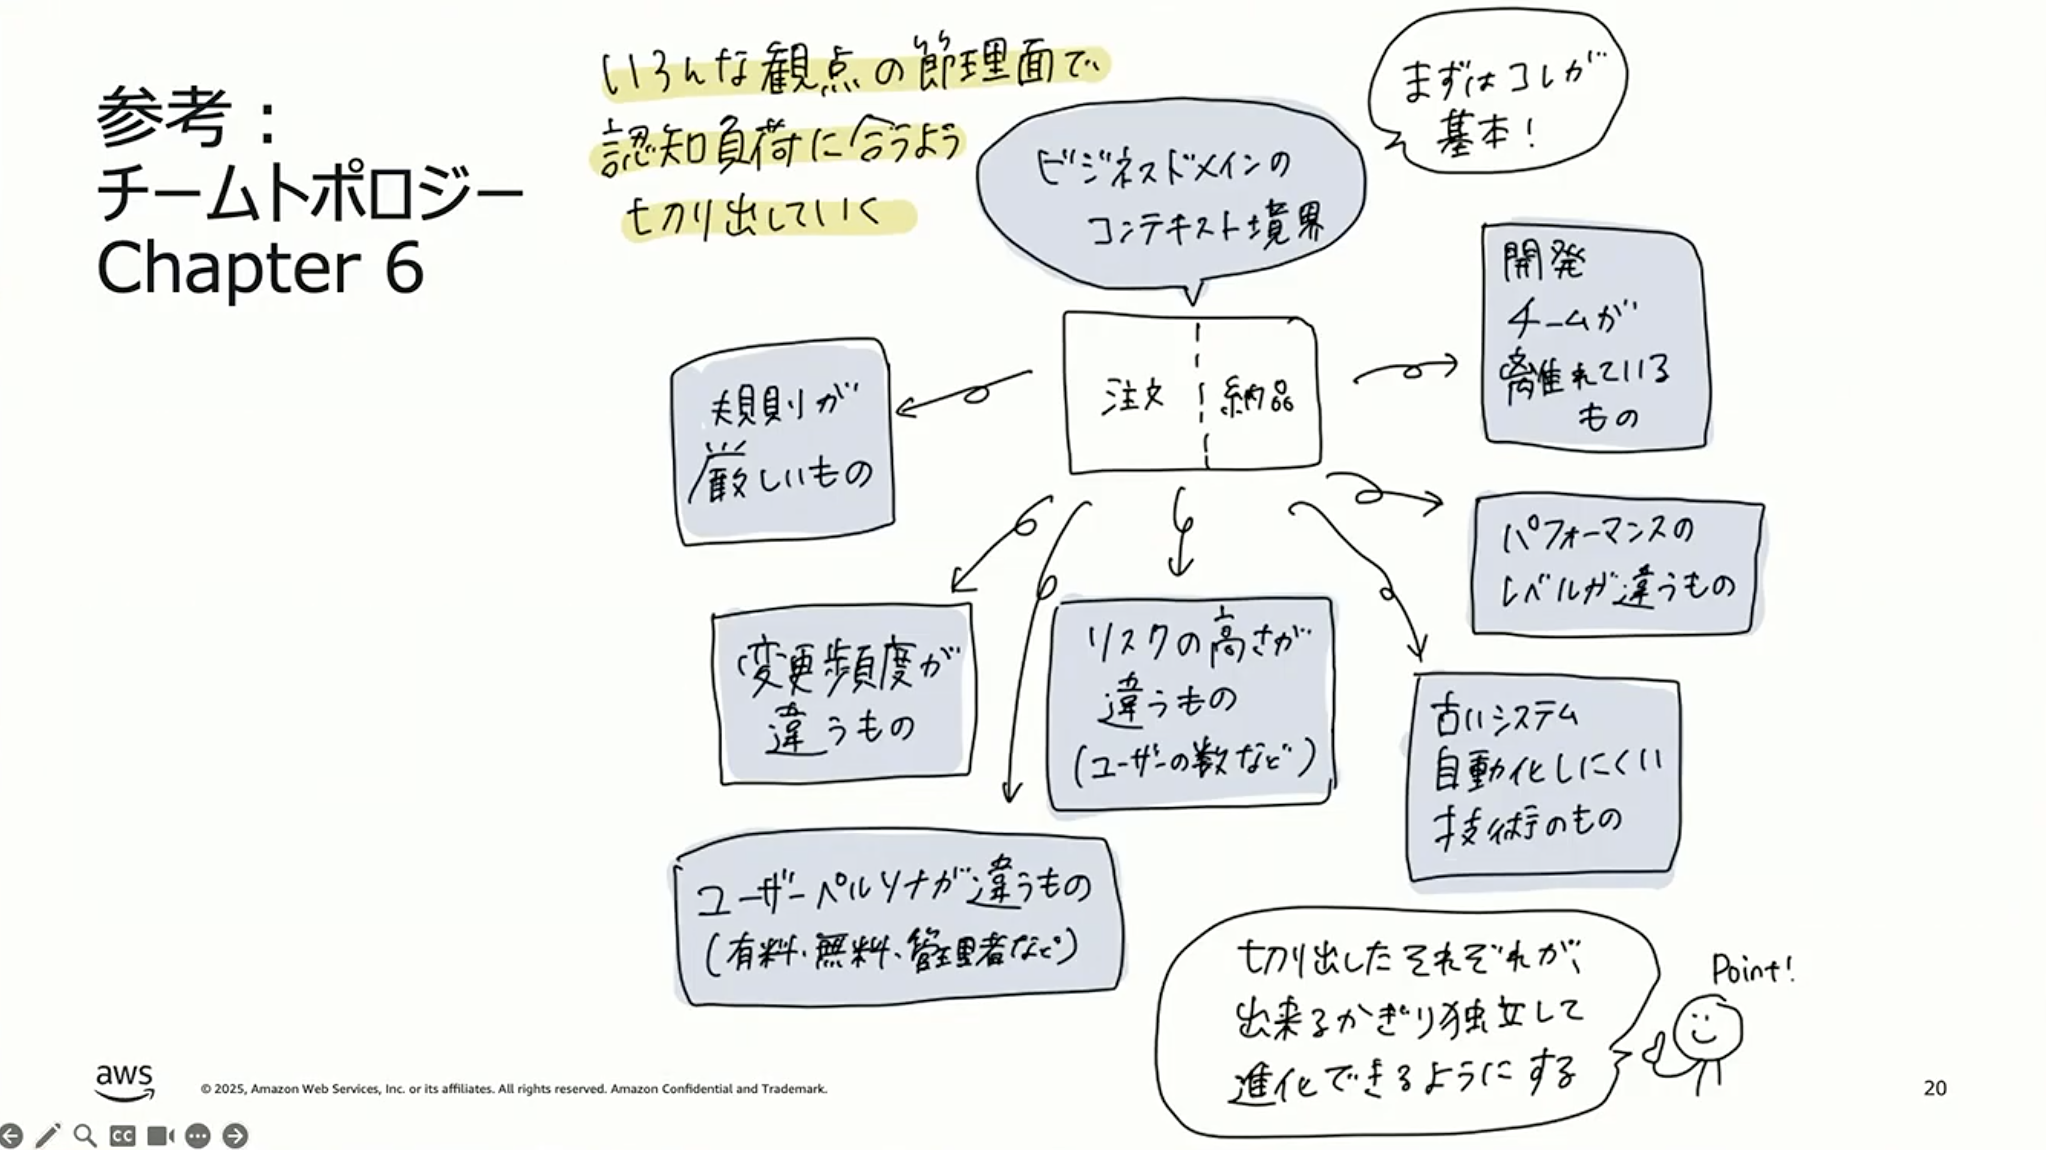 参考：
チームトポロジー
Chapter 6
いろんな観点の節理面で、
認知負荷に合うよう
切り出していく
ビジネスドメインの
コンテキスト境界
まずはコレが
基本！
注文
納品
規則が
厳しいもの
開発
チームが
離れている
もの
パフォーマンスの
レベルが違うもの
変更頻度が
違うもの
リスクの高さが
違うもの
(ユーザーの数など)
古いシステム
自動化しにくい
技術のもの
ユーザーペルソナが違うもの
(有料、無料、管理者など)
切り出したそれぞれが、
出来るかぎり独立して
進化できるようにする
Point!
aws
© 2025, Amazon Web Services, Inc. or its affiliates. All rights reserved. Amazon Confidential and Trademark.
20
CC